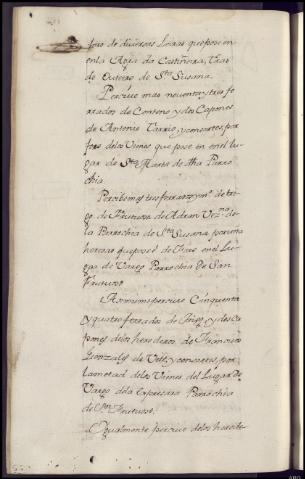 foro de diversos Lugares que posee en
en la Agra da Castiñeira, tras
de Outeiro de Sta. Susana.
Percive mas noventa y tres fe
rrados de Centeno y dos Capones
de Antonio Tarrio, y consortes por
foro de los Vienes que posee en el lu
gar de Sta. Marta de dha Parro
chia.
Percibe mas tres ferrados y mº de tri
go de Fructuoso de Adran Vezno. de
la Parrochia de Sta. Susana por una
heredad que posee de foro en el Lu
gar de Vargo Parrochia de San
Fructuoso.
Asimismo percive Cinquenta
y quatro ferrados de trigo, y dos Ca
pones de los herederos de Francisco
Gonzalez de Vetz, y consortes, por
la metad de los Vienes del Lugar de
Vargo de la expresada Parrochia
de Sn. Fructuoso.
Igualmente percive de los herede